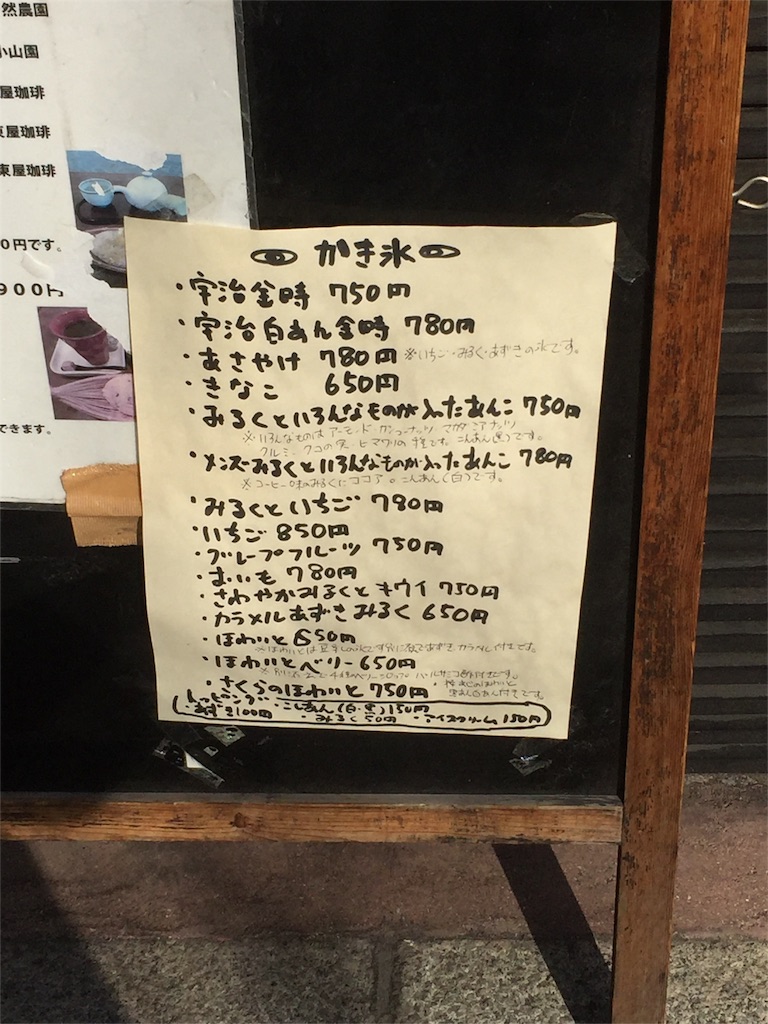 然農園
小山園
屋珈琲
東屋珈琲
東屋珈琲
0円です。
900円
できます。
かき氷
・宇治金時 750円
・宇治白あん金時 780円
・あさやけ 780円 ※いちご・みるく・あずきの氷です。
・きなこ 650円
・みるくといろんなものが入ったあんこ 750円
※いろんなものはアーモンド・カシューナッツ・マカダミアナッツ
クルミ・クコの実・ヒマワリの種です。こしあん(黒)です。
・メンズみるくといろんなものが入ったあんこ 780円
※コーヒー味のみるくにココア。こしあん(白)です。
・みるくといちご 780円
・いちご 850円
・グレープフルーツ 750円
・おいも 780円
・さわやかみるくとキウイ 750円
・カラメルあずきみるく 650円
・ほわいと 650円
※ほわいとは豆乳の氷です 別に あずき カラメル付きです。
・ほわいとベリー 650円
・さくらのほわいと 750円
トッピング
・あずき100円 ・こしあん(白・黒)150円
・みるく50円 ・アイスクリーム150円